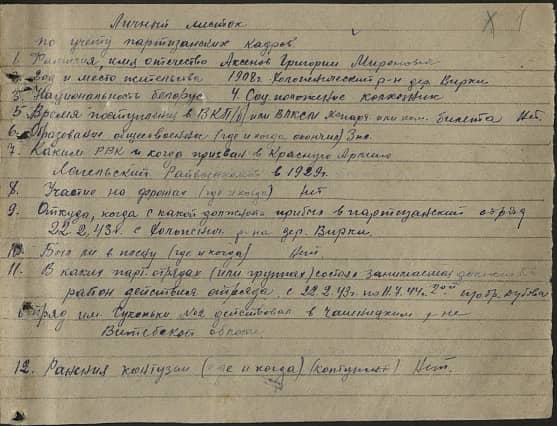 Личный листок
по учёту партизанских кадров
1. Фамилия, имя отчество Аксенов Григорий Миронович
2. Год и место жительства 1908 г. Холопеничский р-н дер. Вирки
3. Национальность белорус 4. Соц. положение колхозник
5. Время поступления в ВКП/б/ или ВЛКСМ № парт. или ком. билета Нет.
6. Образование общее (где и когда окончил) 3
7. Каким РВК и когда призван в Красную Армию
Райвоенкомат в 1929 г.
8. Участие на фронтах (где и когда) нет
9. Откуда, когда с какой должности прибыл в партизанский отряд
22.2.43 г. с Холопенич. р-на дер. Вирки.
10. Был ли в плену (где и когда) Нет.
11. В каких парт. отрядах (или группах) состоял занимаемая должность
район действия отряда. с 22.2.43 г. по 11.7.44 г. бр. Дубова
отряд им. №2 действовал в чашницком р-не
Витебской области.
12. Ранения контузии (где и когда) Нет.